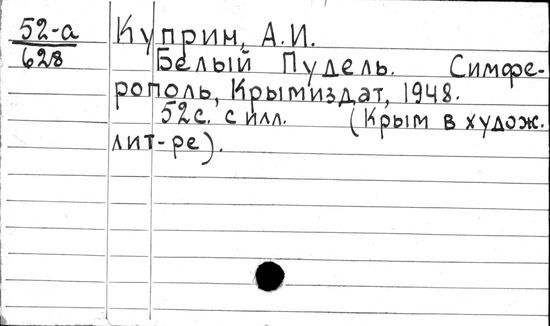 52-а Куприн, А.И.
628 Белый Пудель. Симфе-
рополь, Крымиздат, 1948.
52с. с илл. (Крым в худож.
лит-ре).